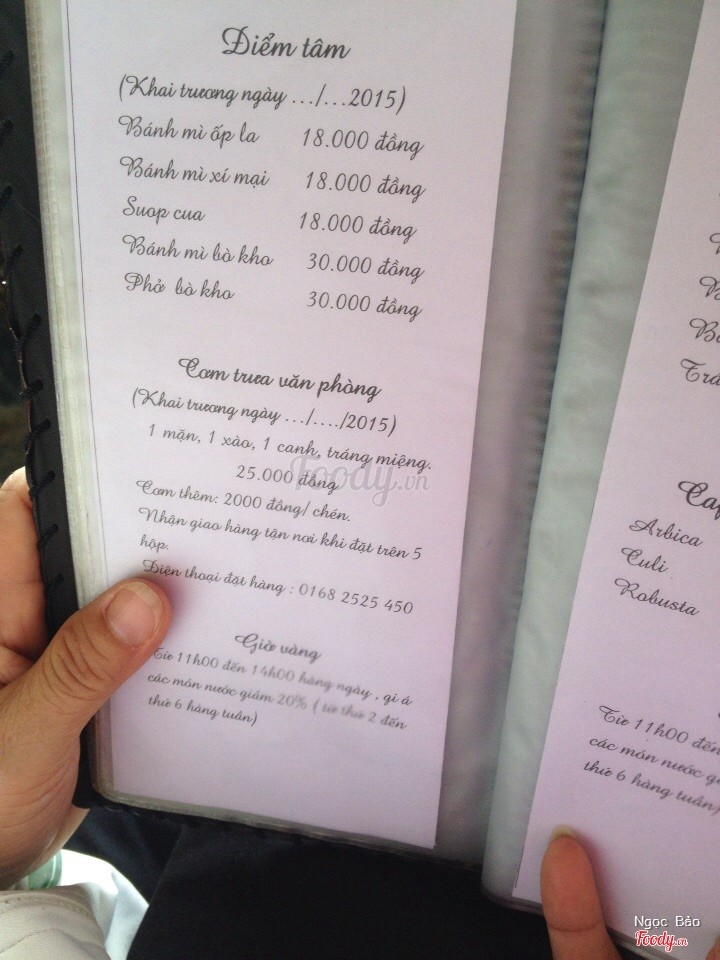 Điểm tâm
(Khai trương ngày .../...2015)
Bánh mì ốp la 18.000 đồng
Bánh mì xí mại 18.000 đồng
Suop cua 18.000 đồng
Bánh mì bò kho 30.000 đồng
Phở bò kho 30.000 đồng
Cơm trưa văn phòng
(Khai trương ngày .../..../2015)
1 mặn, 1 xào, 1 canh, tráng miệng.
25.000 đồng
Cơm thêm: 2000 đồng/ chén.
Nhận giao hàng tận nơi khi đặt trên 5
hộp.
Điện thoại đặt hàng : 0168 2525 450
Giờ vàng
Từ 11h00 đến 14h00 hàng ngày , gi á
các món nước giảm 20% ( từ thứ 2 đến
thứ 6 hàng tuần)
Arbica
Culi
Robusta
Từ 11h00 đến
các món nước
thứ 6 hàng tuần)
Foody.vn
Ngọc Bảo
Foody.vn